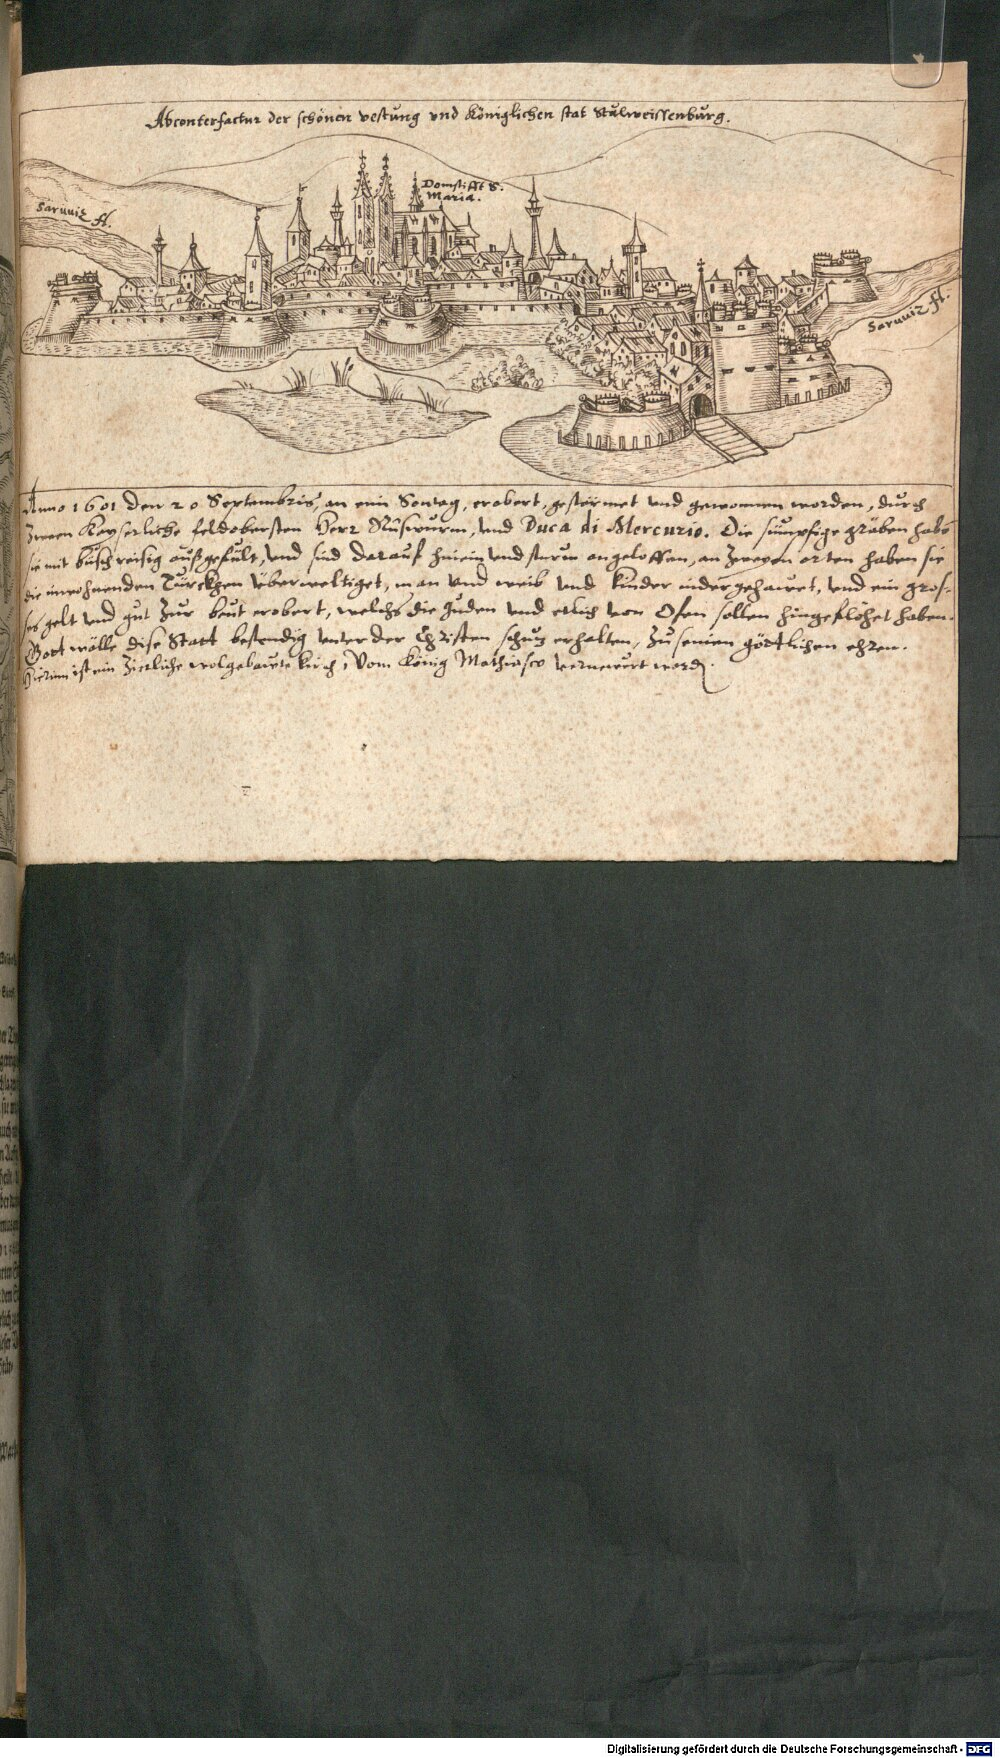 Abconterfactur der schönen vestung vnd Königlichen stat Stulweissenburg.
Domstifft S.
Maria.
Saruuiz fl.
Saruuiz fl.
Anno 1601 den 20 Septembris, an eim Sontag, erobert, gestürmet und gewonnen worden, durch
zween Kayserliche feldobersten Herr Ruswurm, und Duca di Mercurio. Die sümpfige gräben habē
sie mit büsch reisig außgefült, und sind darauf hinein und sturm angeloffen, an zweyen orten haben sie
die inwohnenden Türckhen überweltiget, man und weib und kinder nidergehauwet, und ein gros-
ses gelt und gut zur beut erobert, welchs die Juden und etlich von Ofen sollen hingeflöhet haben.
Gott wölle dise Statt bestendig unter der Christen schuz erhalten, zu seinen göttlichen ehren.
Hierinn ist ein zierliche wolgebauwte kirch, Vom König Mathiasco vernewert word.
Digitalisierung gefördert durch die Deutsche Forschungsgemeinschaft - DFG